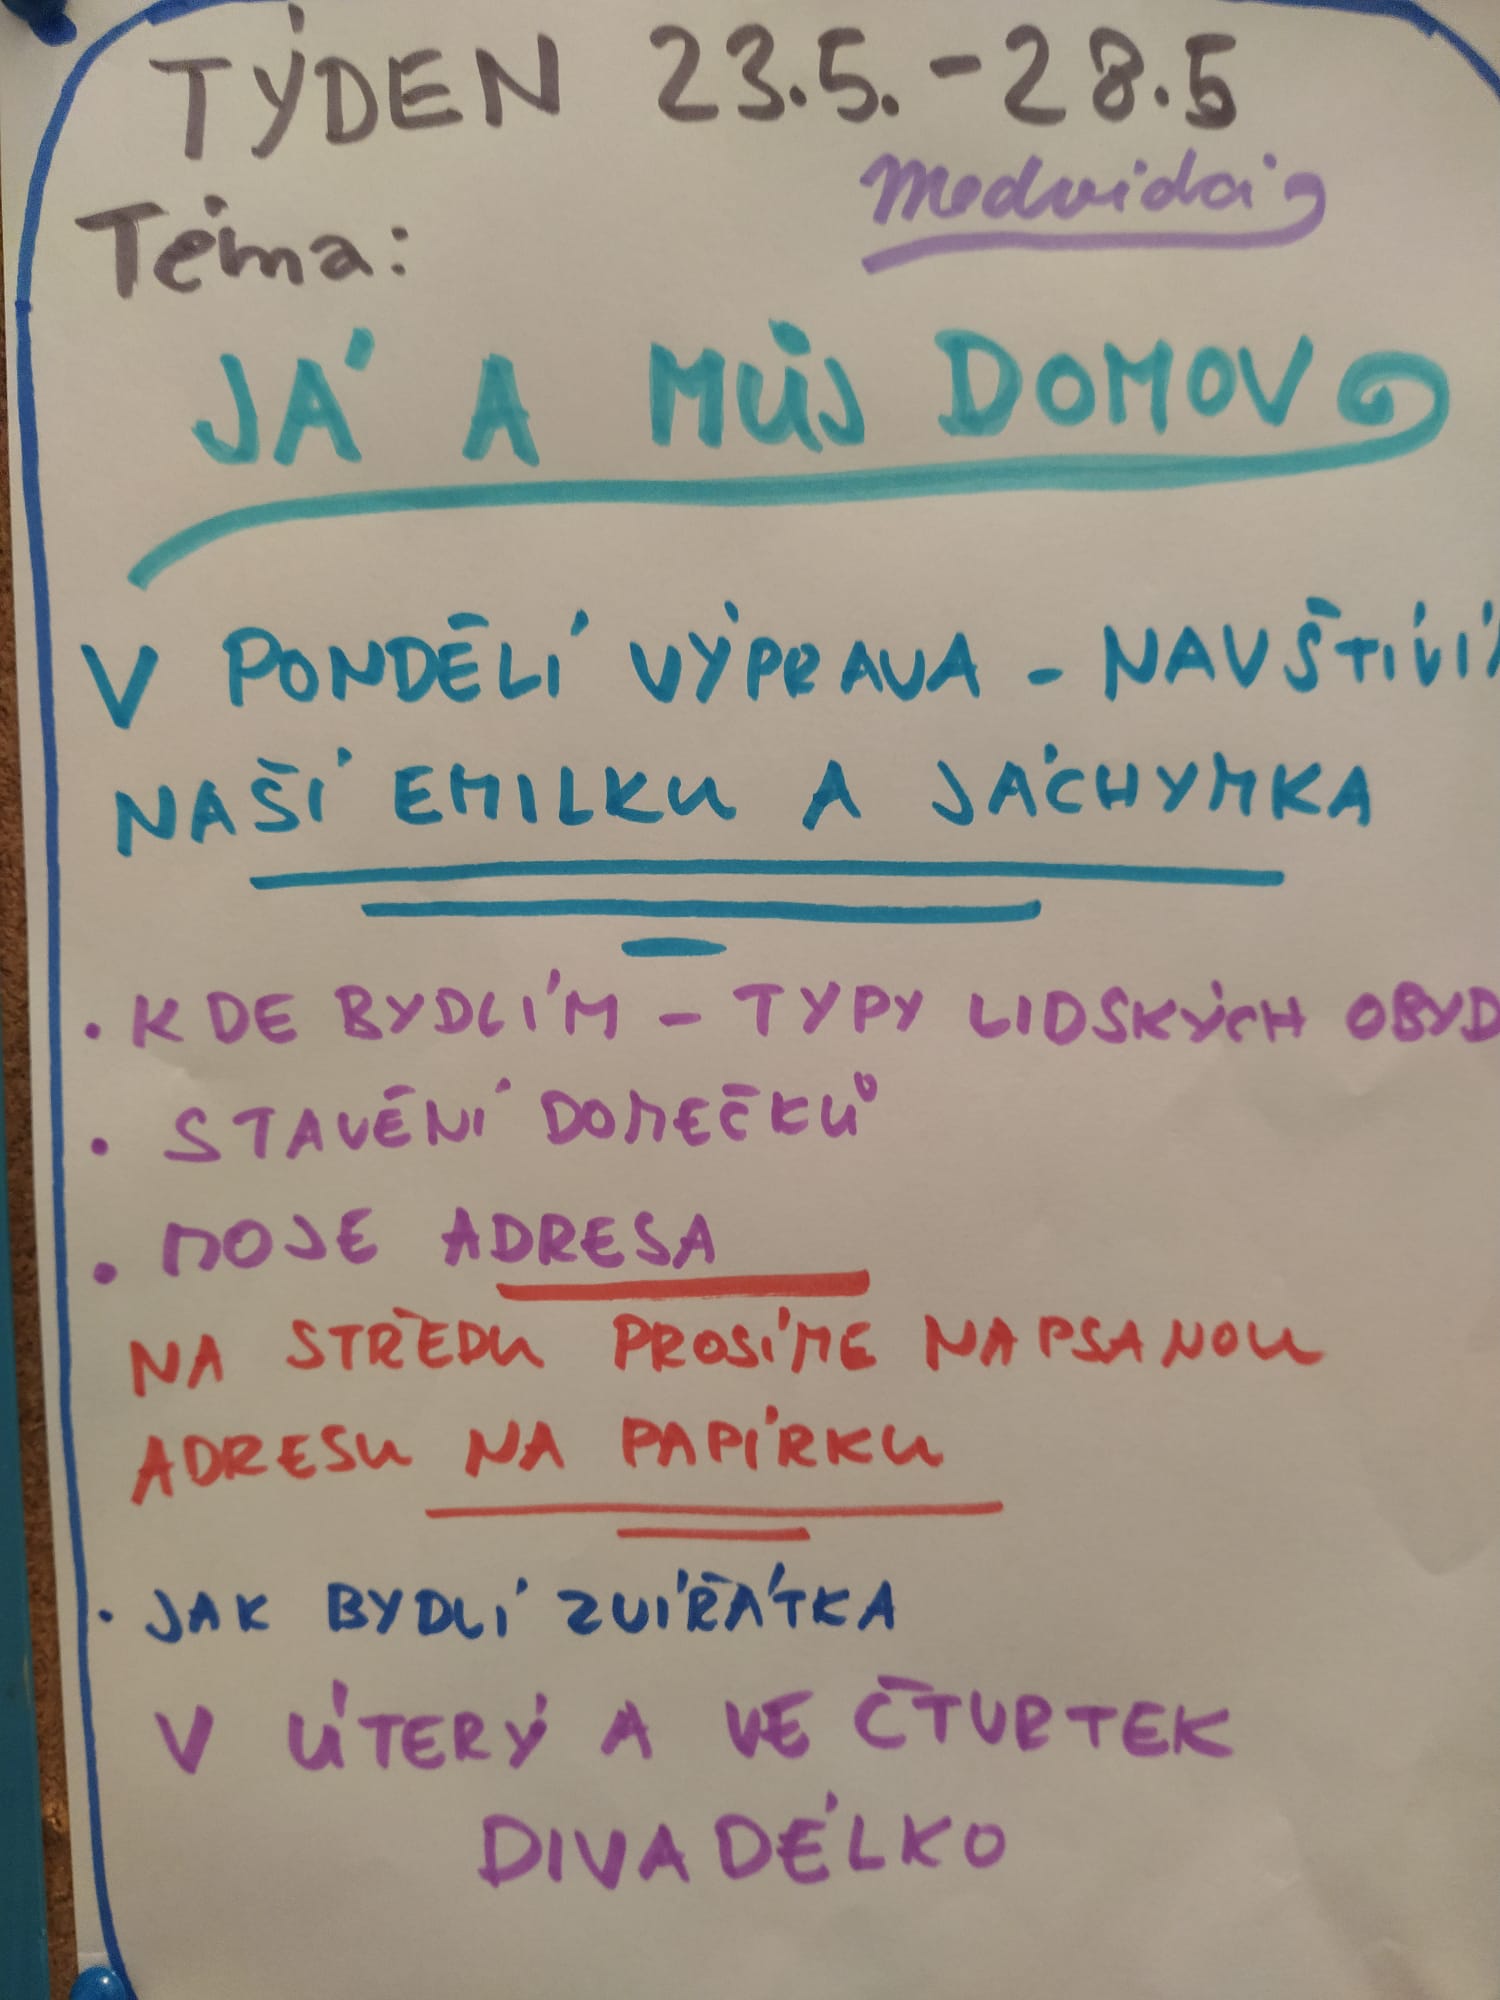 TÝDEN 23.5.-28.5
Medvídci
Téma:
JÁ A MŮJ DOMOV
V PONDĚLÍ VÝPRAVA - NAVŠTÍVÍ
NAŠÍ EMILKU A JÁCHYMKA
• KDE BYDLÍM - TYPY LIDSKÝCH OBYD
• STAVĚNÍ DOMEČKŮ
• MOJE ADRESA
NA STŘEDU PROSÍME NAPSANOU
ADRESU NA PAPÍRKU
• JAK BYDLÍ ZVÍŘÁTKA
V ÚTERÝ A VE ČTVRTEK
DIVADÉLKO